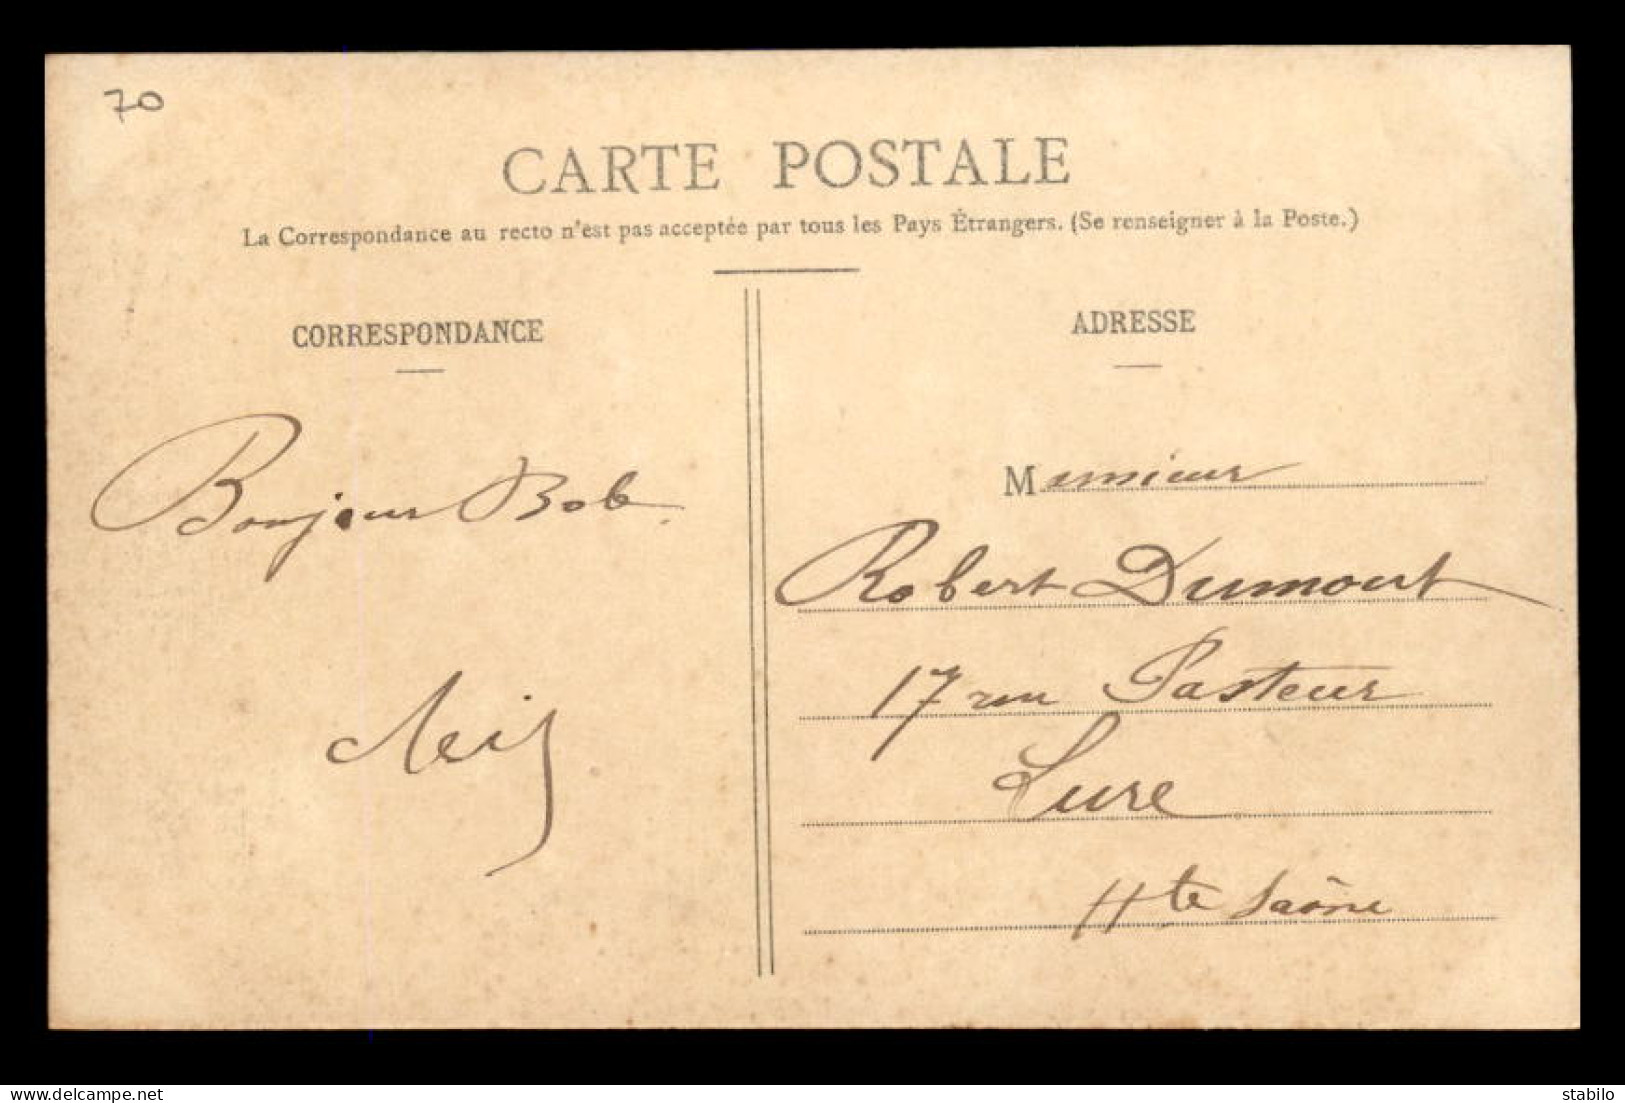 70
CARTE POSTALE
La Correspondance au recto n'est pas acceptée par tous les Pays Étrangers. (Se renseigner à la Poste.)
CORRESPONDANCE
Bonjour Bob.
ADRESSE
Monsieur
Robert Dumont
17 rue Pasteur
Lure
Hte Saône
stabilo